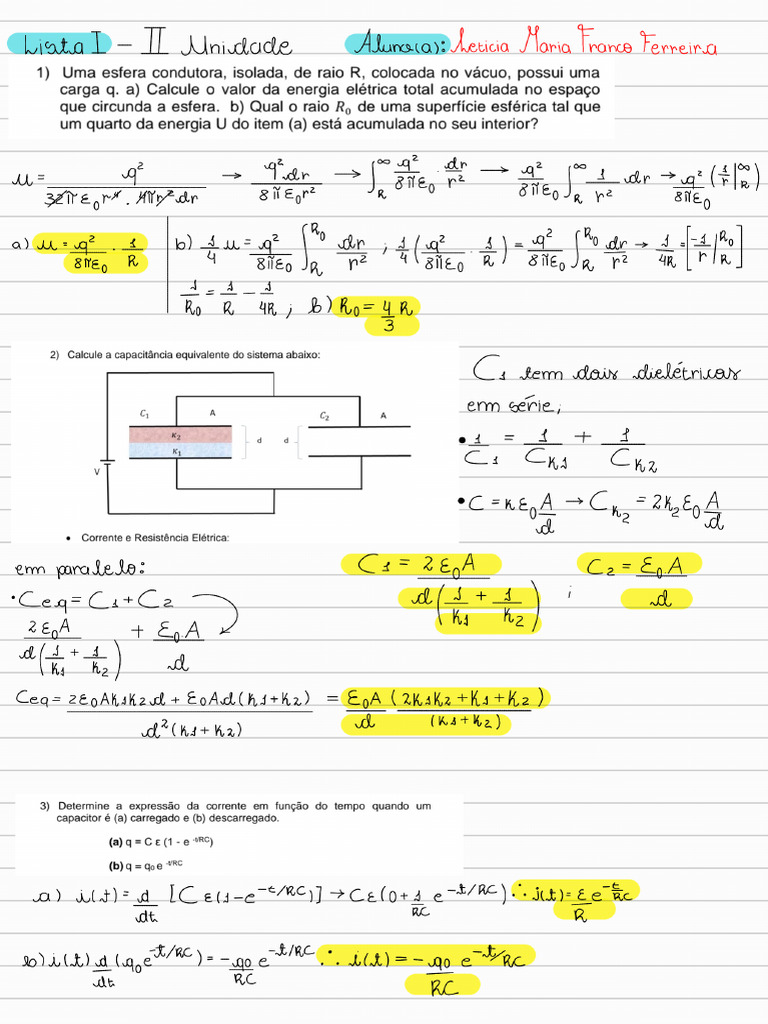 Lista I - II Unidade Aluno(a): Leticia Maria Franco Ferreira
1) Uma esfera condutora, isolada, de raio R, colocada no vácuo, possui uma
carga q. a) Calcule o valor da energia elétrica total acumulada no espaço
que circunda a esfera. b) Qual o raio R₀ de uma superfície esférica tal que
um quarto da energia U do item (a) está acumulada no seu interior?
u = q²/(32π²ε₀r⁴) · 4πr² dr → q² dr/(8πε₀r²) → ∫_R^∞ q²/(8πε₀) · dr/r² → q²/(8πε₀) ∫_R^∞ 1/r² dr → q²/(8πε₀) (1/r |_R^∞)
a) u = q²/(8πε₀) · 1/R
b) 1/4 u = q²/(8πε₀) ∫_R^R₀ dr/r² ; 1/4 (q²/(8πε₀) · 1/R) = q²/(8πε₀) ∫_R^R₀ dr/r² → 1/4R = [-1/r |_R^R₀]
1/R₀ = 1/R - 1/4R ; b) R₀ = 4/3 R
2) Calcule a capacitância equivalente do sistema abaixo:
C₁ A C₂ A
K₂
K₁
d d
V
• Corrente e Resistência Elétrica:
C₁ tem dois dielétricos
em série;
• 1/C₁ = 1/C_K1 + 1/C_K2
• C = kε₀ A/d → C_K2 = 2k₂ε₀ A/d
C₁ = 2ε₀A / d(1/K₁ + 1/K₂) ; C₂ = ε₀.A / d
em paralelo:
• Ceq = C₁ + C₂
2ε₀A / d(1/K₁ + 1/K₂) + ε₀.A / d
Ceq = 2ε₀AK₁K₂d + ε₀Ad(K₁+K₂) / d²(K₁+K₂) = ε₀A/d (2K₁K₂+K₁+K₂) / (K₁+K₂)
3) Determine a expressão da corrente em função do tempo quando um
capacitor é (a) carregado e (b) descarregado.
(a) q = C ε (1 - e ^-t/RC)
(b) q = q₀ e ^-t/RC
a) i(t) = d/dt [Cε(1-e^-t/RC)] → Cε(0 + 1/RC e^-t/RC) ∴ i(t) = ε/R e^-t/RC
b) i(t) d/dt (q₀e^-t/RC) = -q₀/RC e^-t/RC ∴ i(t) = -q₀/RC e^-t/RC